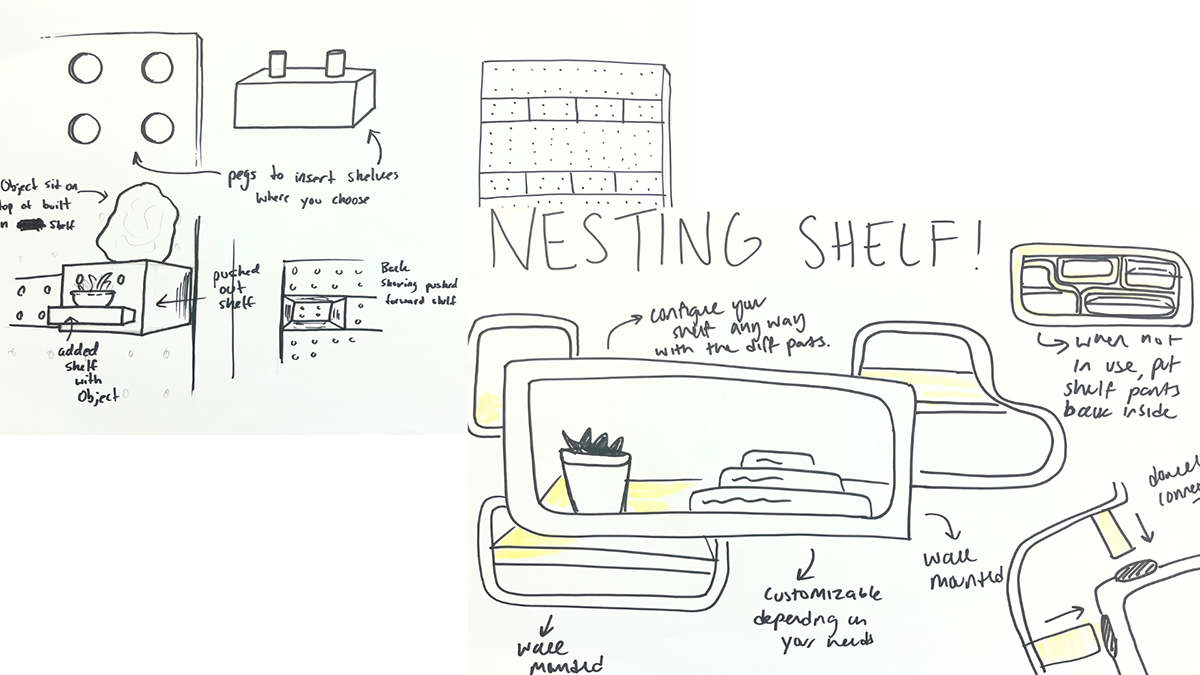 pegs to insert shelves
where you choose
Object sit on
top of built
n shelf
pushed
out
shelf
Back
showing pushed
forward shelf
added
shelf
with
Object
NESTING SHELF!
configue your
shelf any way
with the diff parts.
when not
in use, put
shelf parts
back inside
wall
mounted
customizable
depending on
your needs
wall
mounted